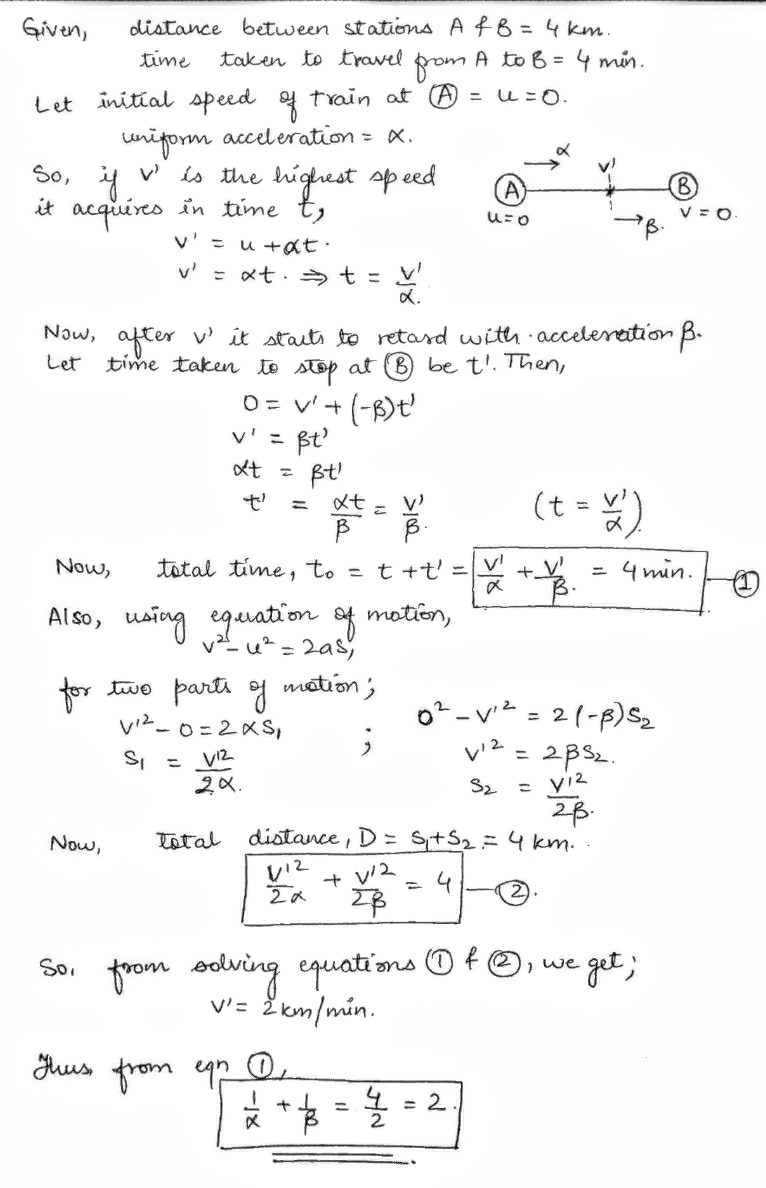 Given, distance between stations A & B = 4 km.
time taken to travel from A to B = 4 min.
Let initial speed of train at Ⓐ = u = 0.
uniform acceleration = α.
So, if v' is the highest speed
it acquires in time t,
α v'
A B
u=0 β. v = 0.
v' = u + αt.
v' = αt. ⇒ t = v'/α.
Now, after v' it starts to retard with acceleration β.
Let time taken to stop at Ⓑ be t'. Then,
0 = v' + (-β)t'
v' = βt'
αt = βt'
t' = αt/β = v'/β. (t = v'/α)
Now, total time, t₀ = t + t' = v'/α + v'/β. = 4 min. ①
Also, using equation of motion,
v² - u² = 2as,
for two parts of motion;
v'² - 0 = 2αS₁ ; 0² - v'² = 2(-β)S₂
S₁ = v'²/2α. v'² = 2βS₂.
S₂ = v'²/2β.
Now, total distance, D = S₁+S₂ = 4 km.
v'²/2α + v'²/2β = 4 ②.
So, from solving equations ① & ②, we get;
v' = 2 km/min.
Thus, from eqn ①,
1/α + 1/β = 4/2 = 2.